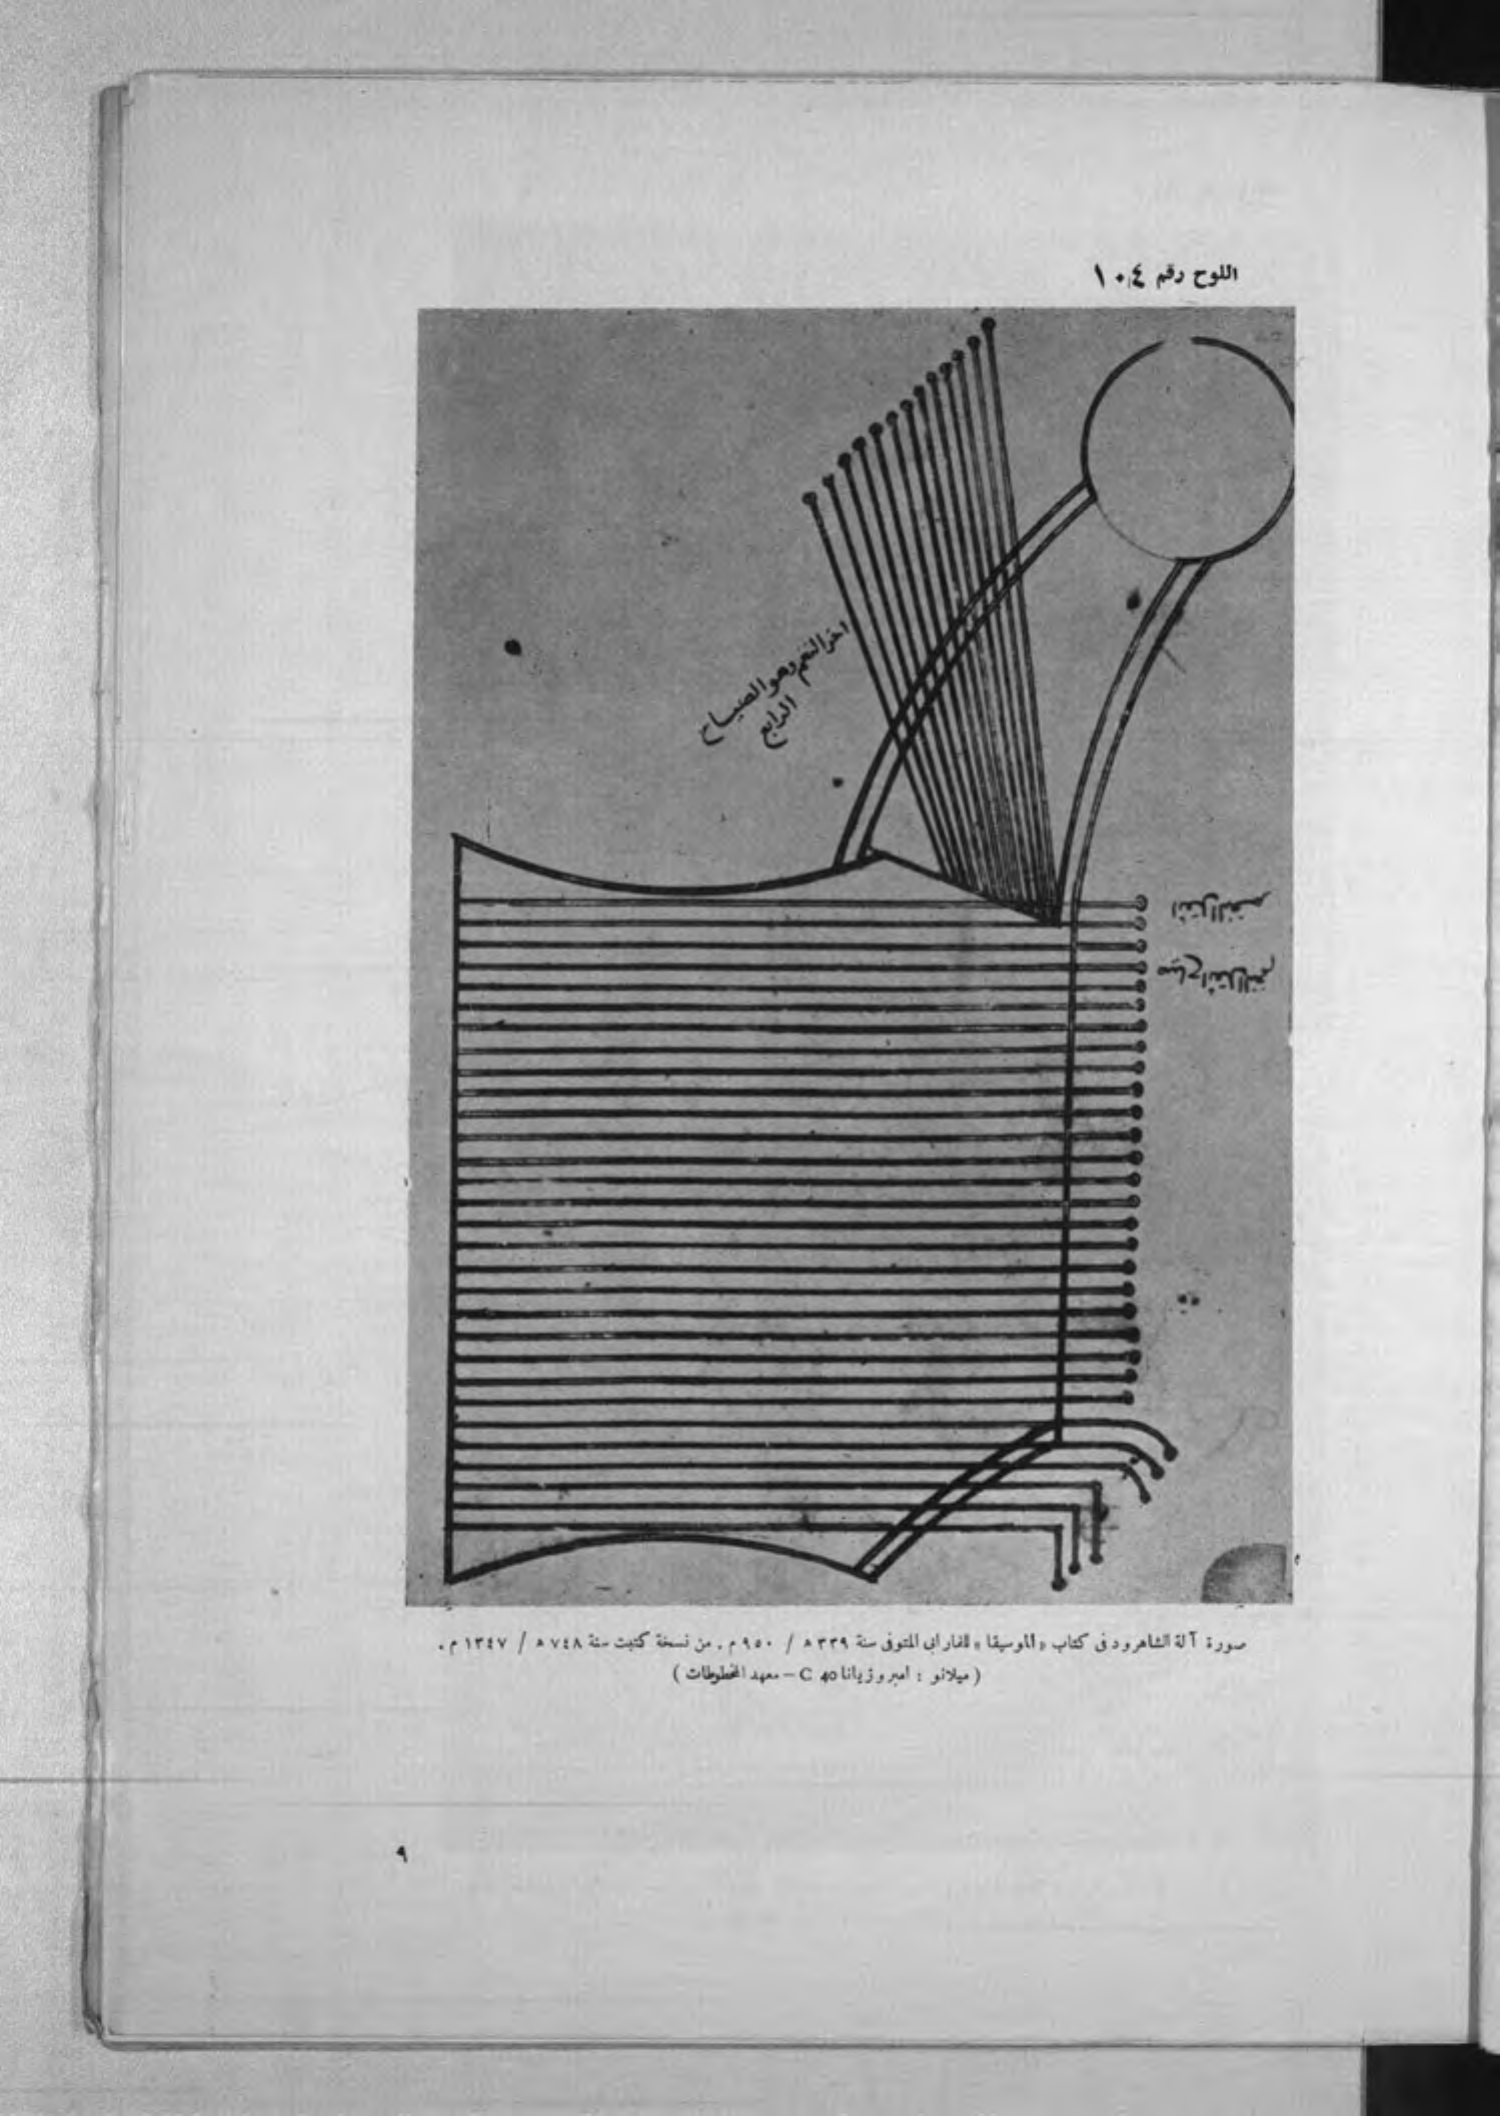 اللوح رقم ١٠٤
اخر النغم وهو الصياح
الرابع
اثقل النغم
صياح اثقل النغم
صورة آلة الشاهرود فى كتاب «الموسيقا» للفارابى المتوفى سنة ٣٣٩ ه / ٩٥٠ م. من نسخة كتبت سنة ٧٤٨ ه / ١٣٤٧ م.
(ميلانو : امبروزيانا C 40 – معهد المخطوطات)
٩